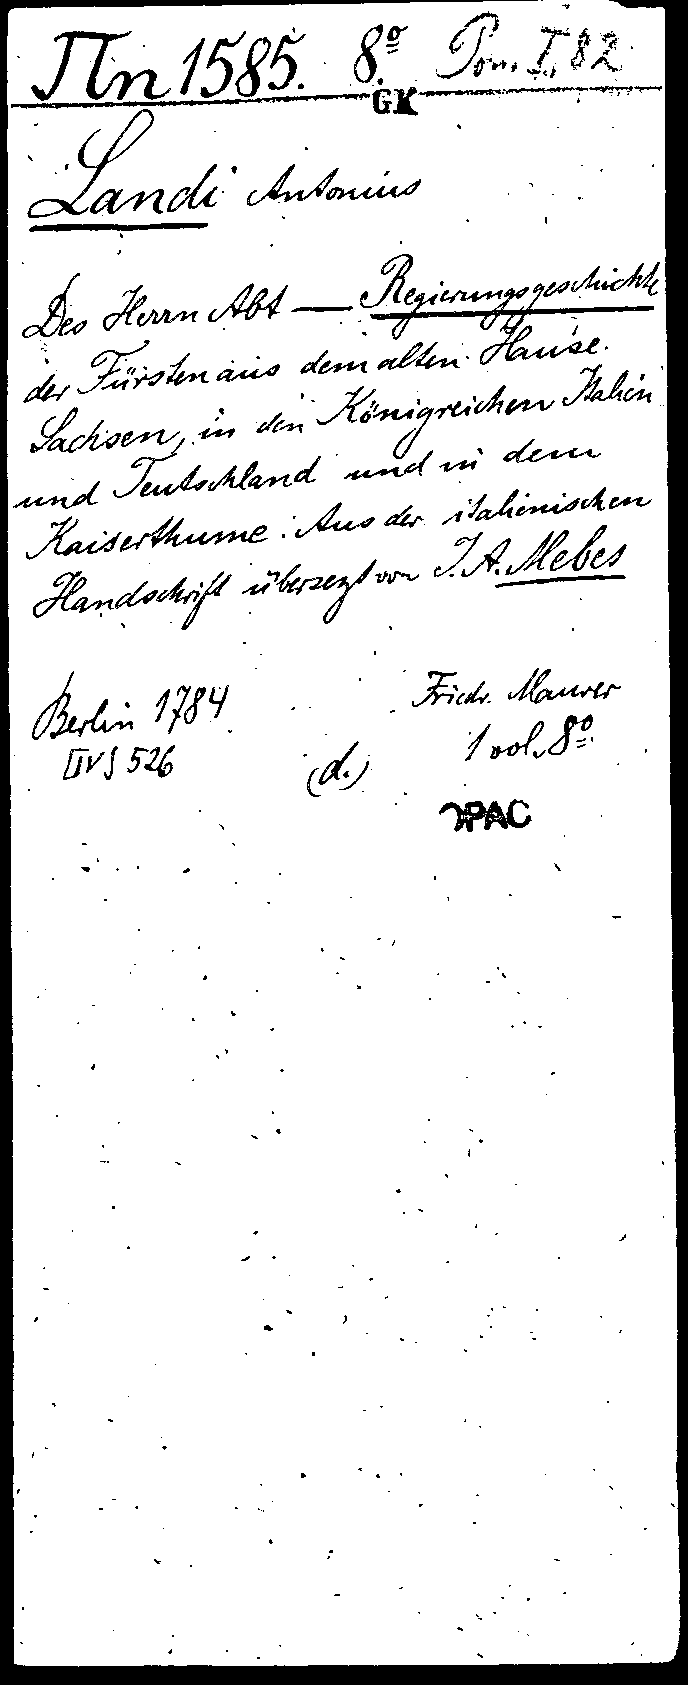 Πn 1585. 8.º Pon. I. 82
GK
Landi Antonius
Des Herrn Abt — Regierungsgeschichte
der Fürsten aus dem alten Hause
Sachsen, in den Königreichen Italien
und Teutschland und in dem
Kaiserthume. Aus der italienischen
Handschrift übersezt von J. A. Mebes
Berlin 1784 Friedr. Maurer
[IV] 526 (d.) 1 vol. 8º
OPAC